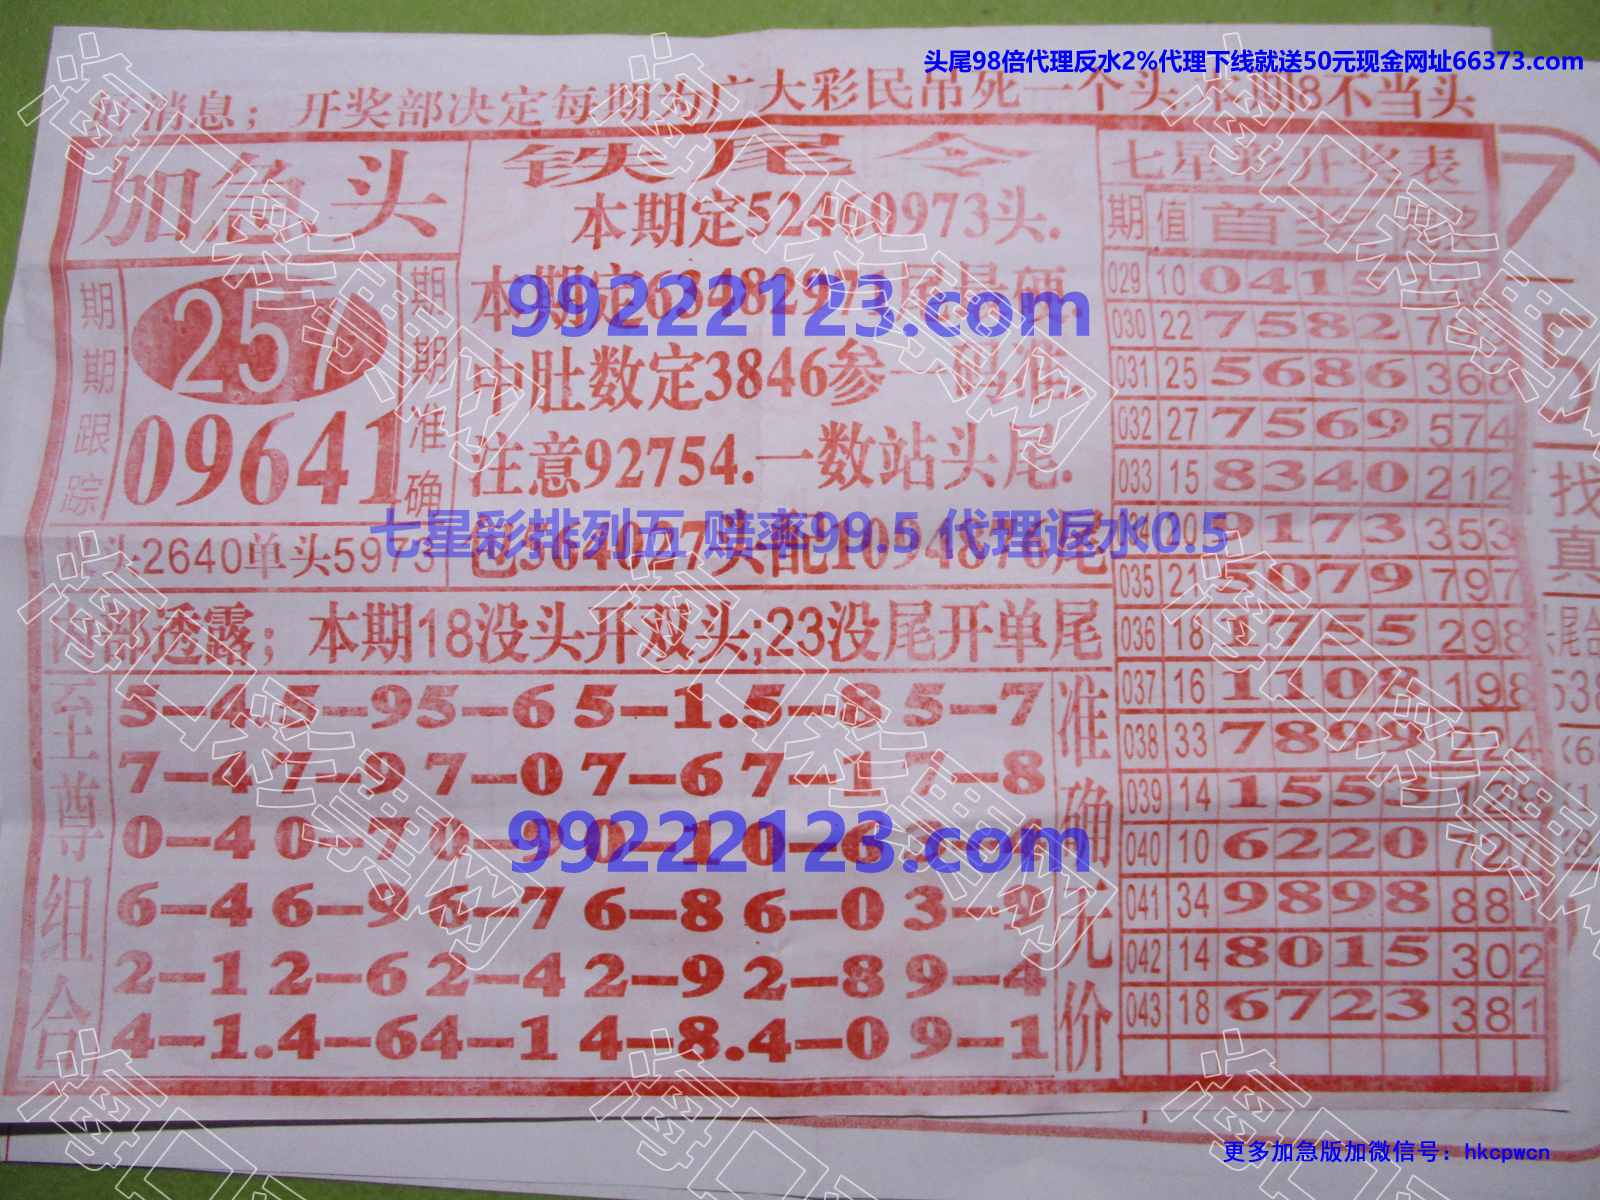 头尾98倍代理反水2%代理下线就送50元现金网址66373.com
好消息；开奖部决定每期为广大彩民吊死一个头.本期8不当头
加急头
期期跟踪
257
09641
期期准确
头2640单头5973
铁尾令
本期定52460973头.
本期定63482971尾是硬
中肚数定3846参一码准
注意92754.一数站头尾.
包564027头配1094876尾
99222123.com
七星彩排列五 赔率99.5 代理返水0.5
内部透露；本期18没头开双头;23没尾开单尾
至尊组合
5-4 5-9 5-6 5-1.5-8 5-7
7-4 7-9 7-0 7-6 7-1 7-8
0-4 0-7 0-9 0-1 0-6
6-4 6-9 6-7 6-8 6-0 3-9
2-1 2-6 2-4 2-9 2-8 9-4
4-1.4-6 4-1 4-8.4-0 9-1
99222123.com
准确无价
七星彩开奖表
期 值 首奖
029 10 0415
030 22 7582
031 25 5686 368
032 27 7569 574
033 15 8340 212
20 9173 353
035 21 5079 797
036 18 1755 298
037 16 1108 198
038 33 7899 224
039 14 1553 129
040 10 6220 727
041 34 9898 88
042 14 8015 302
043 18 6723 381
7
5
找
真
尾合
538
海南彩票网
更多加急版加微信号：hkcpwcn